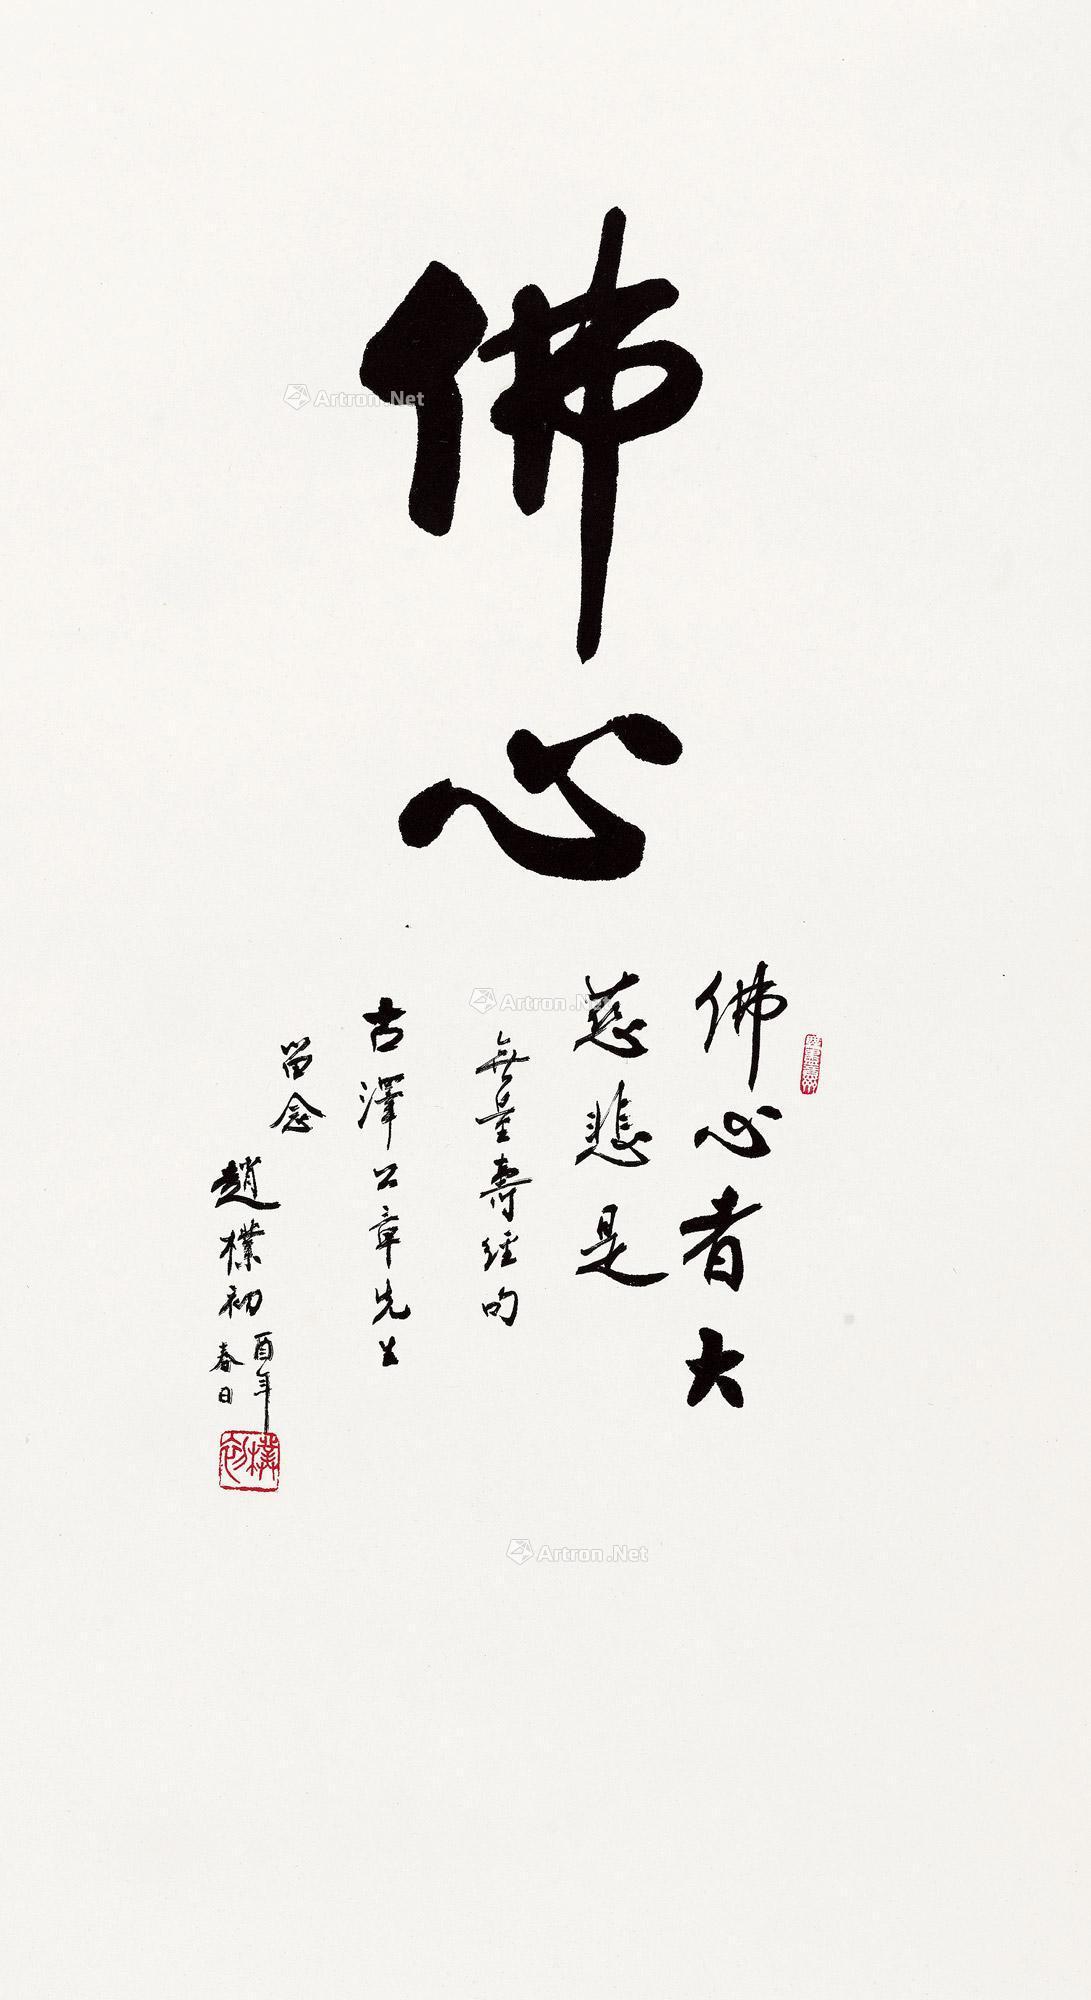 佛心
佛心者大
慈悲是
無量壽經句
古澤公章先生
留念
趙樸初
酉年
春日
樸初
Artron.Net
Artron.Net
Artron.Net